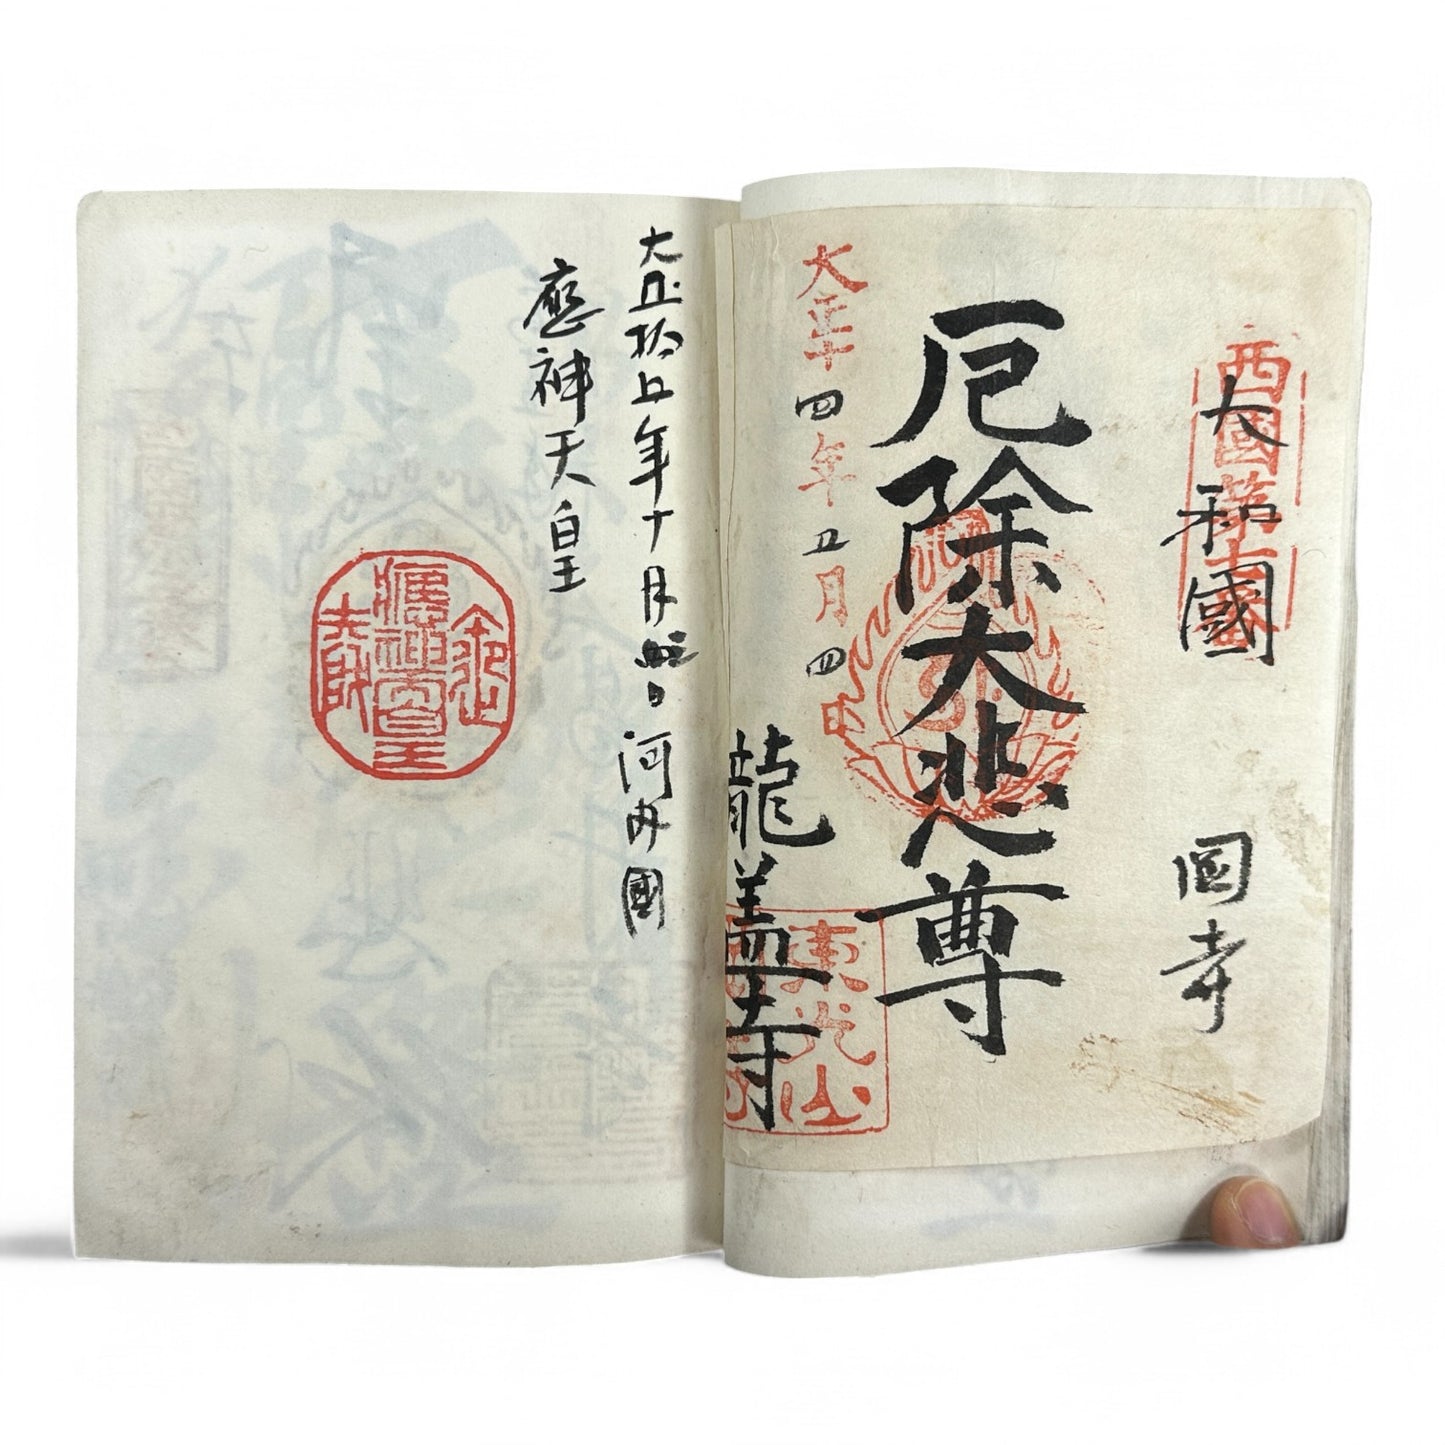 西國第七番
大和國
圀寺
厄除大悲尊
大正十四年五月四日
龍蓋寺
東光山
大正拾五年十月 日 河内國
應神天皇
應神天皇